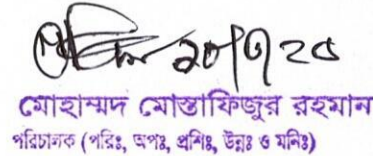 ২০/৭/২৫
মোহাম্মদ মোস্তাফিজুর রহমান
পরিচালক (পরিঃ, অপঃ, প্রশিঃ, উন্নঃ ও মনিঃ)